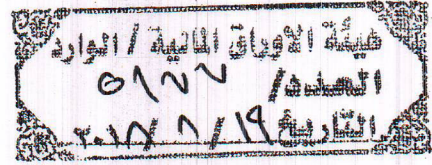 هيئة الاوراق المالية / الوارد
العدد/ ٥٨٧٧
التاريخ ١٩ / ٨ /